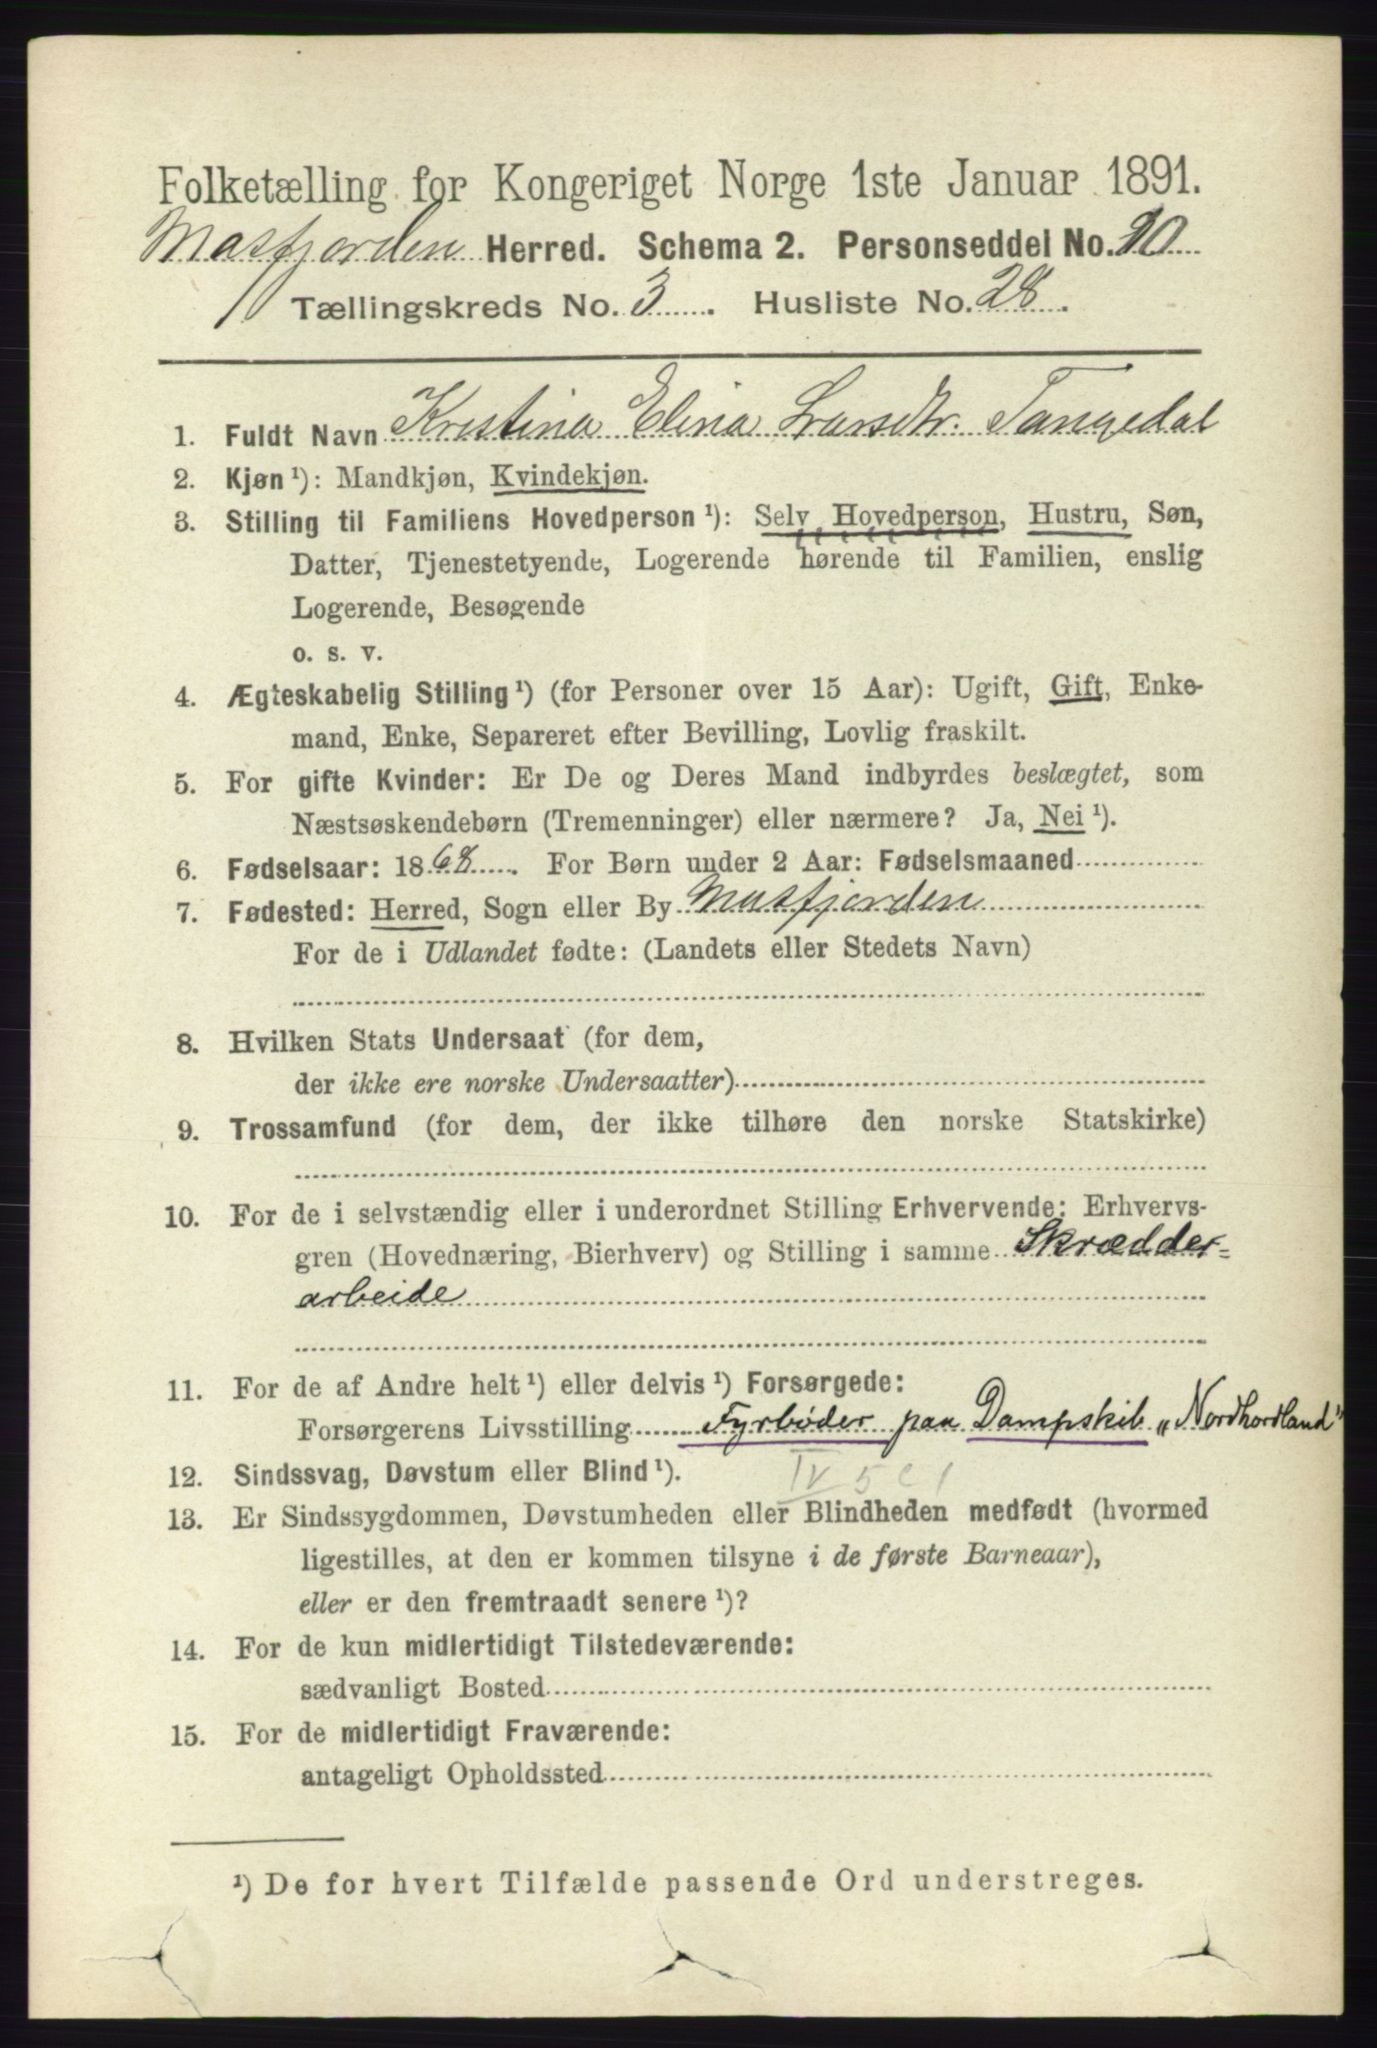 Folketælling for Kongeriget Norge 1ste Januar 1891.
Masfjorden Herred. Schema 2. Personseddel No. 20
Tællingskreds No. 3. Husliste No. 28.
1. Fuldt Navn Kristina Elina Larsdtr. Tangedal
2. Kjøn ¹): Mandkjøn, Kvindekjøn.
3. Stilling til Familiens Hovedperson ¹): Selv Hovedperson, Hustru, Søn,
Datter, Tjenestetyende, Logerende hørende til Familien, enslig
Logerende, Besøgende
o. s. v.
4. Ægteskabelig Stilling ¹) (for Personer over 15 Aar): Ugift, Gift, Enke-
mand, Enke, Separeret efter Bevilling, Lovlig fraskilt.
5. For gifte Kvinder: Er De og Deres Mand indbyrdes beslægtet, som
Næstsøskendebørn (Tremenninger) eller nærmere? Ja, Nei ¹).
6. Fødselsaar: 1868. For Børn under 2 Aar: Fødselsmaaned
7. Fødested: Herred, Sogn eller By Masfjorden
For de i Udlandet fødte: (Landets eller Stedets Navn)
8. Hvilken Stats Undersaat (for dem,
der ikke ere norske Undersaatter)
9. Trossamfund (for dem, der ikke tilhøre den norske Statskirke)
10. For de i selvstændig eller i underordnet Stilling Erhvervende: Erhvervs-
gren (Hovednæring, Bierhverv) og Stilling i samme Skrædder-
arbeide
11. For de af Andre helt ¹) eller delvis ¹) Forsørgede:
Forsørgerens Livsstilling Fyrbøder paa Dampskib „Nordhordland"
12. Sindssvag, Døvstum eller Blind ¹).
13. Er Sindssygdommen, Døvstumheden eller Blindheden medfødt (hvormed
ligestilles, at den er kommen tilsyne i de første Barneaar),
eller er den fremtraadt senere ¹)?
14. For de kun midlertidigt Tilstedeværende:
sædvanligt Bosted
15. For de midlertidigt Fraværende:
antageligt Opholdssted
¹) De for hvert Tilfælde passende Ord understreges.